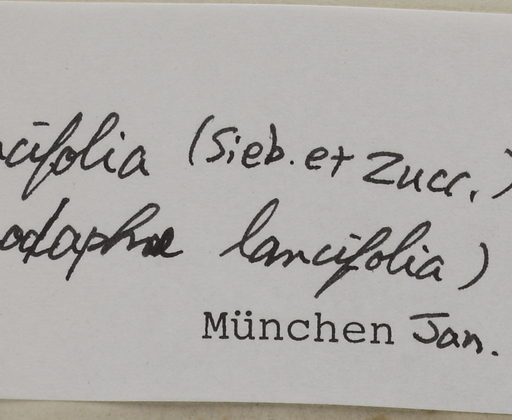 cifolia (Sieb. et Zucc.)
odaphne lancifolia)
München Jan.